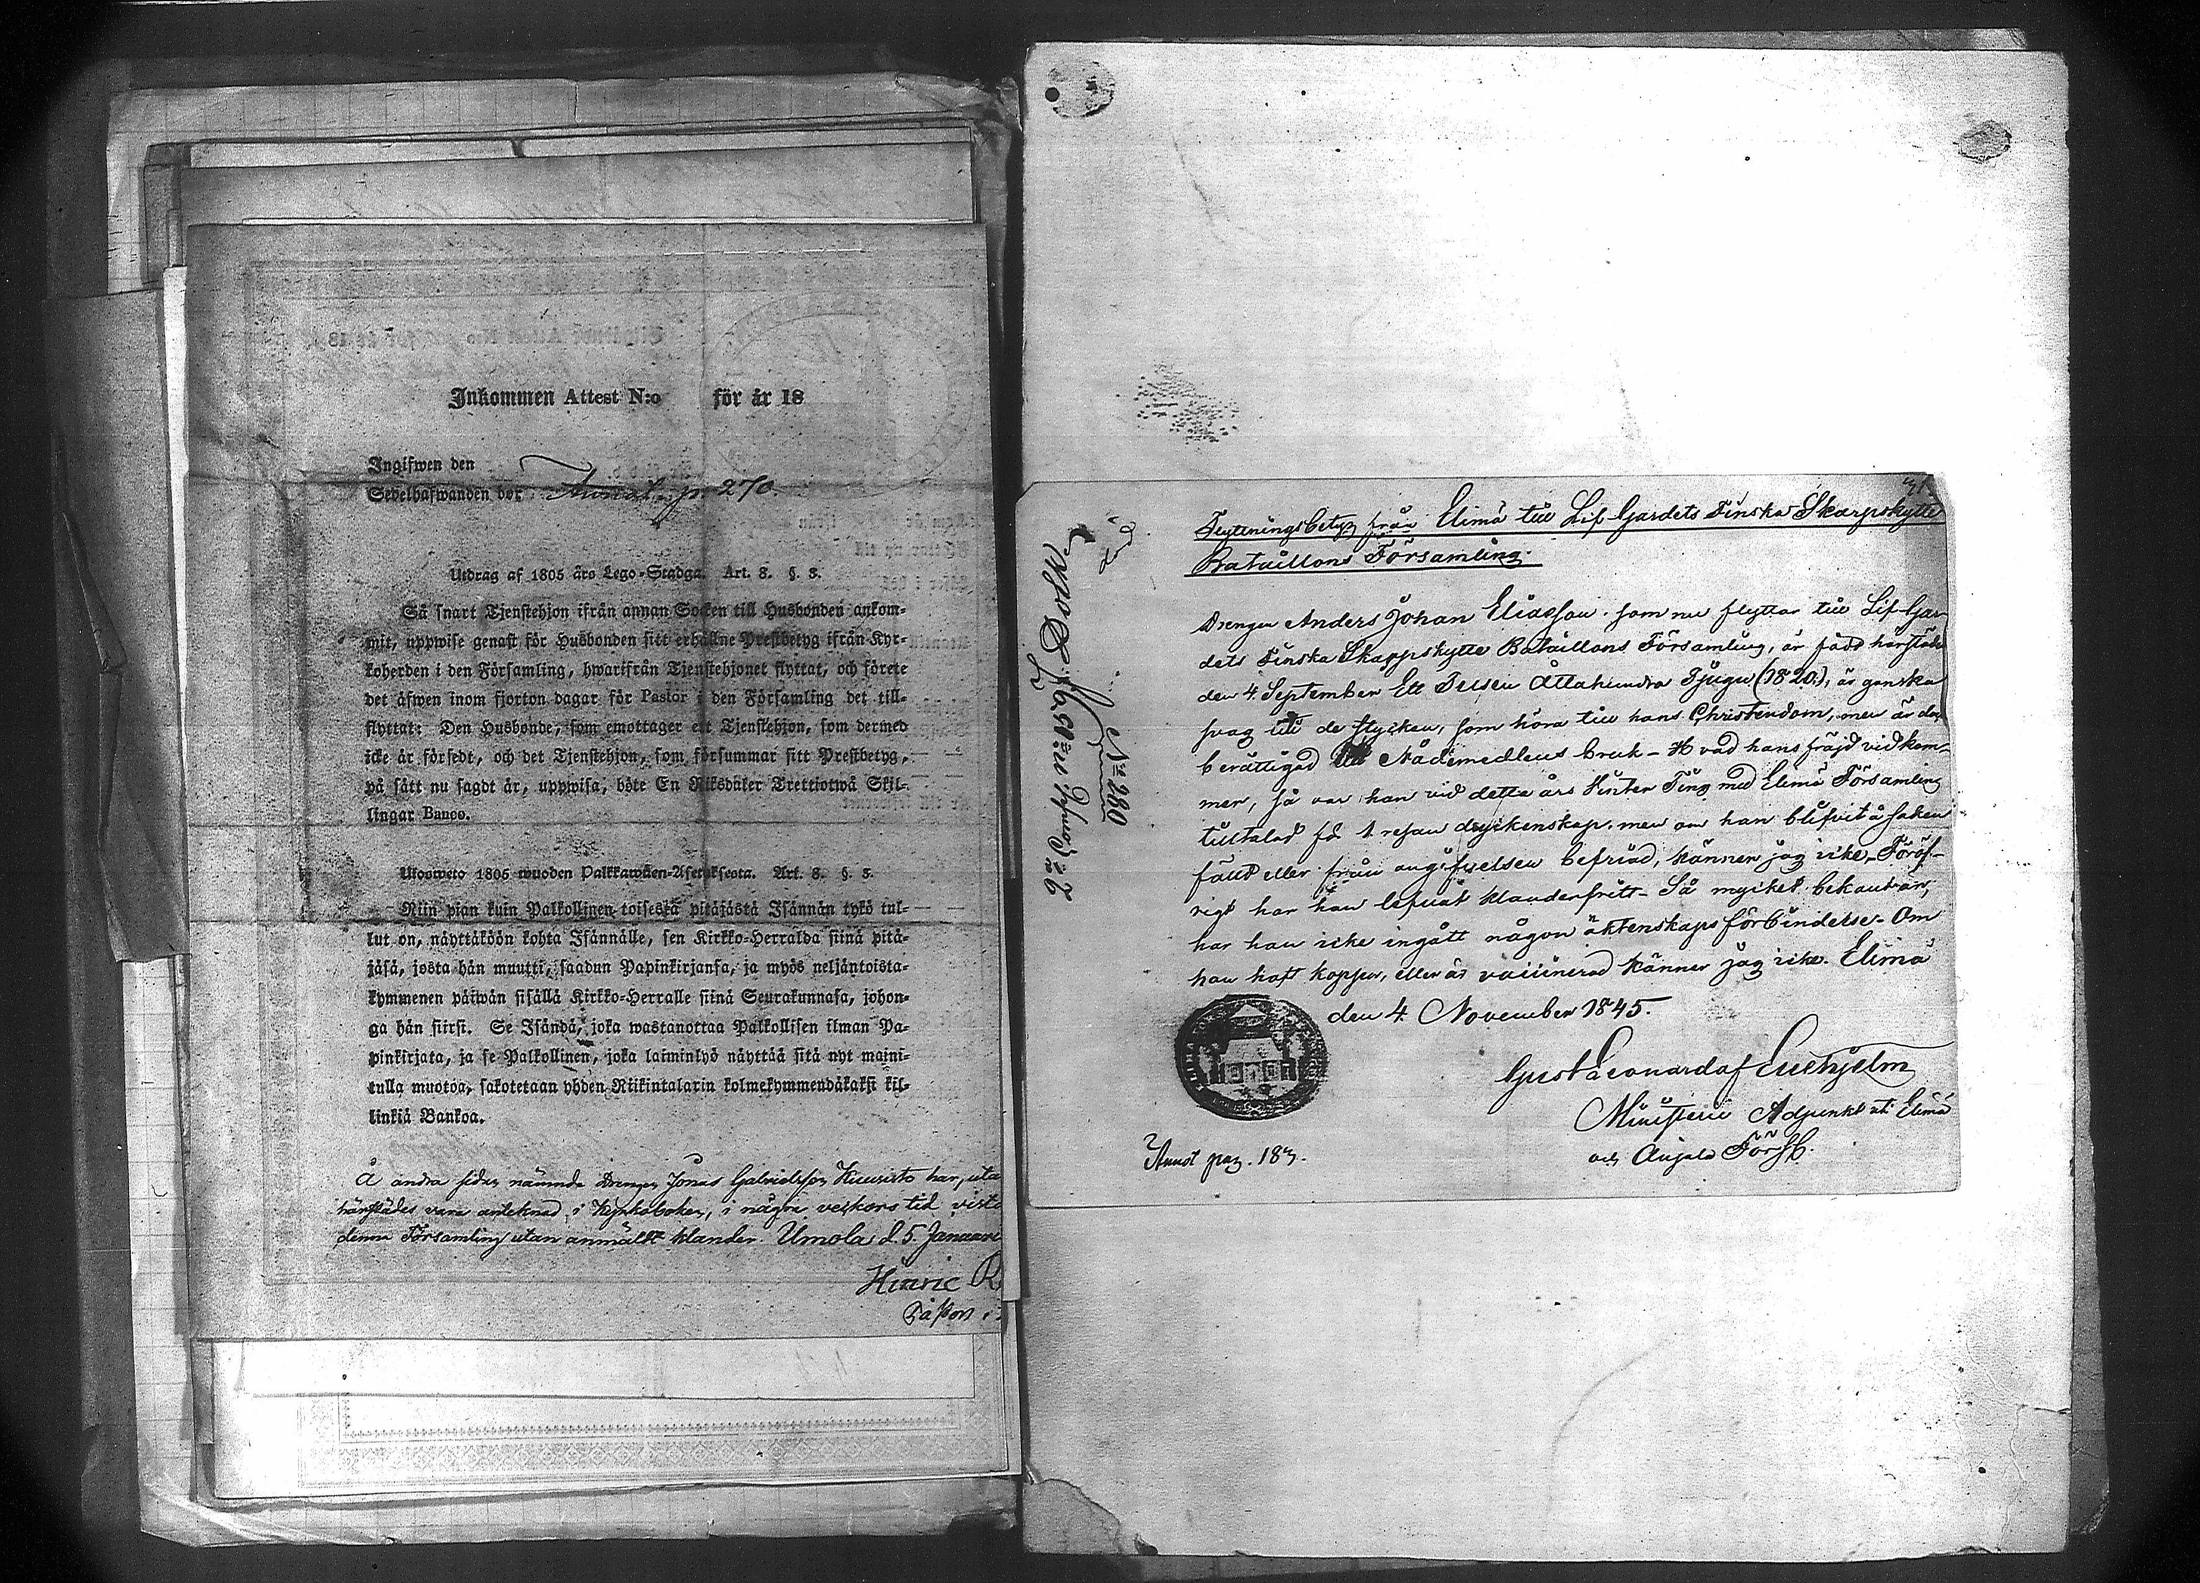 Inkommen Attest N:o för år 18
Ingifwen den
Sedelhafwanden bor Annal. p. 270.
Utdrag af 1805 års Lego-Stadga. Art. 3. §. 3.
Så snart Tjenstehjon ifrån annan Socken till Husbonden ankom-
mit, uppwise genast för Husbonden sitt erhållne Prestbetyg ifrån Kyr-
koherden i den Församling, hwarifrån Tjenstehjonet flyttat, och förete
det äfwen inom fjorton dagar för Pastor i den Församling det till-
flyttat: Den Husbonde, som emottager ett Tjenstehjon, som dermed
icke är försedt, och det Tjenstehjon, som försummar sitt Prestbetyg,
på sätt nu sagdt är, uppwisa, böte En Riksdaler Trettiotwå Skil-
lingar Banco.
Ulosweto 1805 wuoden Palkkawäen-Asetuksesta. Art. 3. §. 3.
Niin pian kuin Palkollinen toisesta pitäjästä Isännän tykö tul-
lut on, näyttäköön kohta Isännälle, sen Kirkko-Herralda siinä pitä-
jäsä, josta hän muutti, saadun Papinkirjansa, ja myös neljäntoista-
kymmenen päiwän sisällä Kirkko-Herralle siinä Seurakunnasa, johon-
ga hän siirsi. Se Isändä, joka wastanottaa Palkollisen ilman Pa-
pinkirjata, ja se Palkollinen, joka laiminlyö näyttää sitä nyt maini-
tulla muotoa, sakotetaan yhden Riikintalarin kolmekymmendäkaksi kil-
linkiä Bankoa.
Å andra sidan nämnde Drengen Jonas Gabrielsson Kuusisto har, uta
härstädes vara anteknad i Kyrkoboken, i några veckors tid vista
denna Församling utan anmäldt klander. Umola d. 5. Januari
Henric R
Pastor i
Flyttningsbetyg från Elimä till Lif-Gardets Finska Skarpskytte
Bataillons Församling.
Drengen Anders Johan Eliasson, som nu flyttar till Lif-Gar-
dets Finska Skarpskytte Bataillons Församling, är född härstädes
den 4 September Ett Tusen Åttahundra Tjugu (1820), är ganska
svag uti de stycken, som höra till hans Christendom, men är doc
berättigad till Nådemedlens bruk - Hvad hans fräjd vidkom-
mer, så var han vid detta års Vinter Ting med Elimä Församling
tilltalad fö 1 resan dryckenskap, men om han blifvit å saken
fälld eller från angifvelsen befriad, känner jag icke. Föröf-
rigt har han lefvat klanderfritt - Så mycket bekant är,
har han icke ingått någon äktenskapsförbindelse - Om
han haft koppor, eller är vaccinerad känner jag icke. Elimä
den 4 November 1845.
Gust Leonard af Enehjelm
Ministerii Adjunkt uti Elimä
och Anjala Förs:.
Annot pag. 183.
No 280